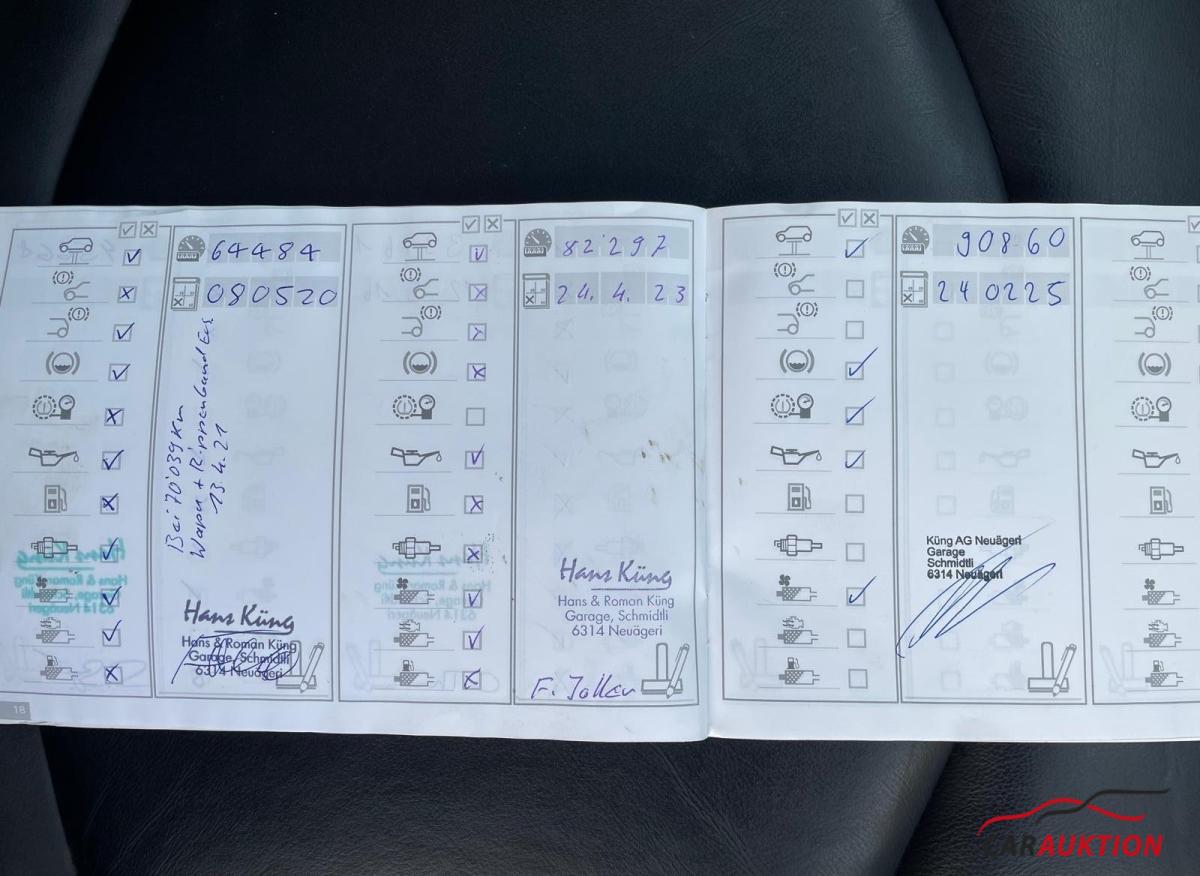 64484
080520
Bei 70'039 Km
Wapu + Rippenband Ers.
13.4.21
Hans Küng
Hans & Roman Küng
Garage, Schmidtli
6314 Neuägeri
18
82'297
24. 4. 23
Hans Küng
Hans & Roman Küng
Garage, Schmidtli
6314 Neuägeri
90860
240225
Küng AG Neuägeri
Garage
Schmidtli
6314 Neuägeri
CARAUKTION